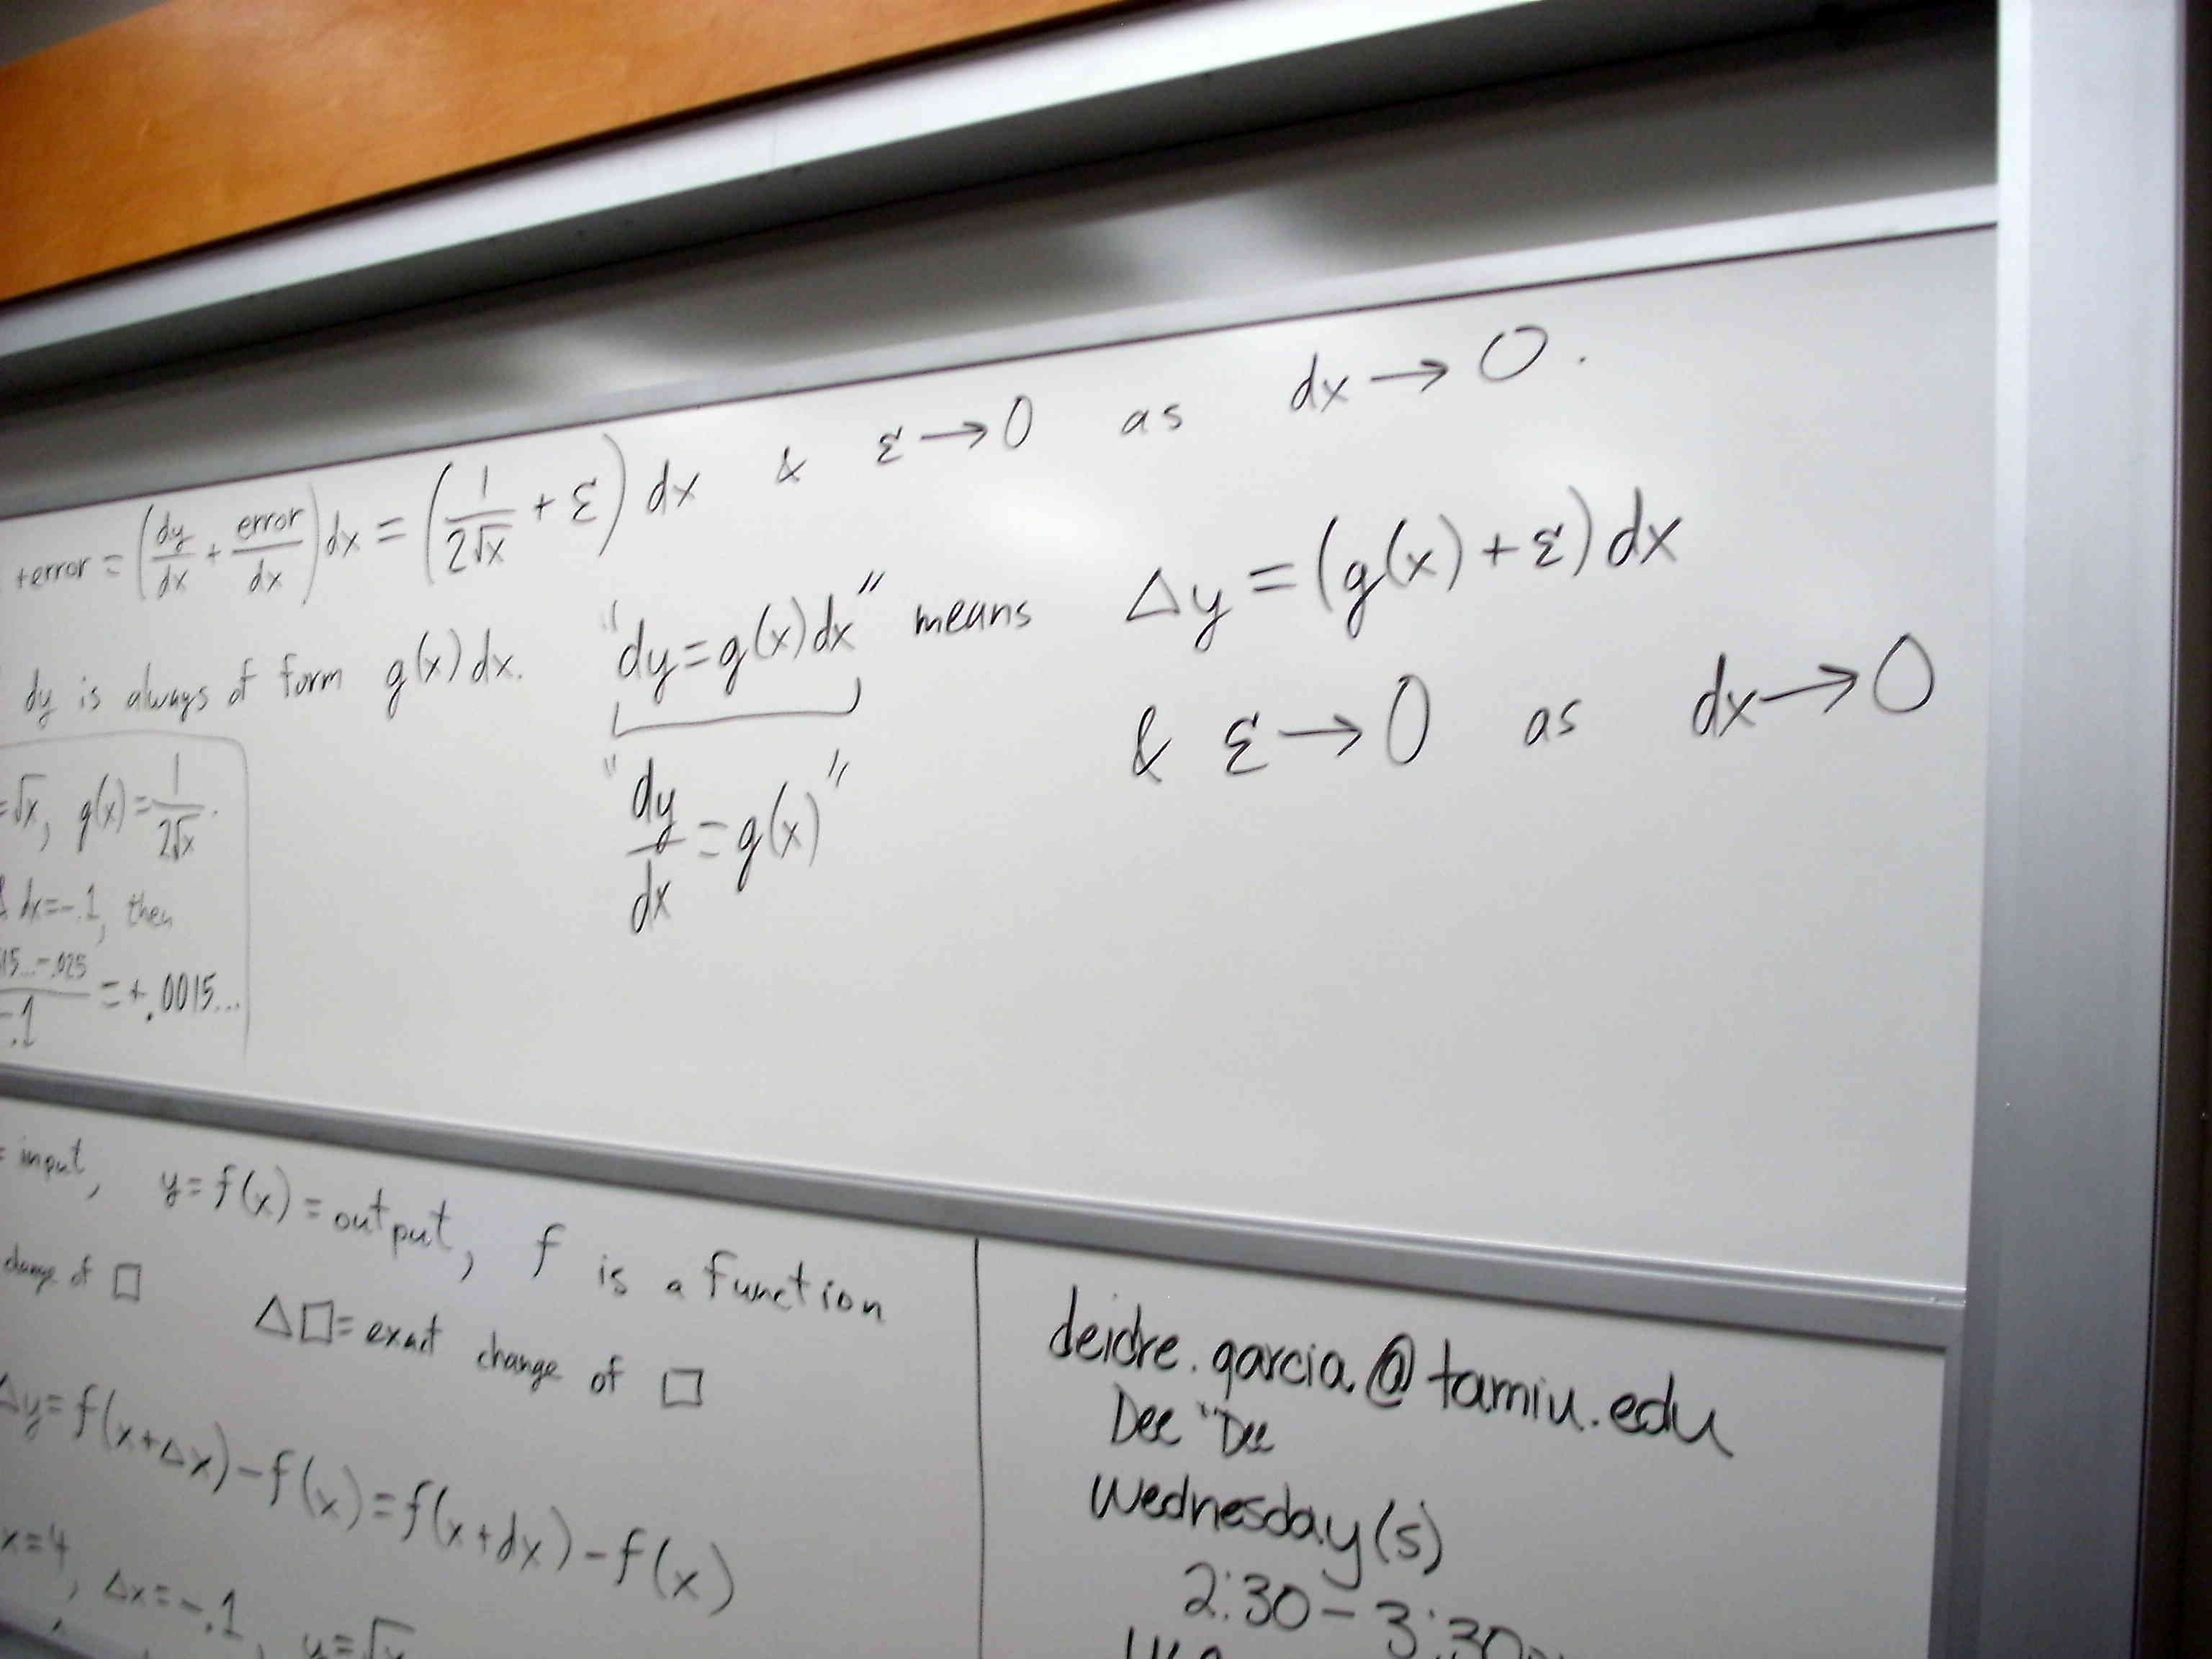 +error = (dy/dx + error/dx) dx = (1/(2√x) + ε) dx & ε → 0 as dx → 0.
dy is always of form g(x) dx. "dy = g(x) dx" means Δy = (g(x) + ε) dx
& ε → 0 as dx → 0
"dy/dx = g(x)"
=√x, g(x) = 1/(2√x).
dx = -.1, then
15...-.025/-.1 = +.0015...
= input, y = f(x) = output, f is a function
change of □ Δ□ = exact change of □
Δy = f(x+Δx) - f(x) = f(x+dx) - f(x)
x=4, Δx = -.1, y = √x
deidre.garcia@tamiu.edu
Dee "Dee
Wednesday(s)
2:30 - 3:30